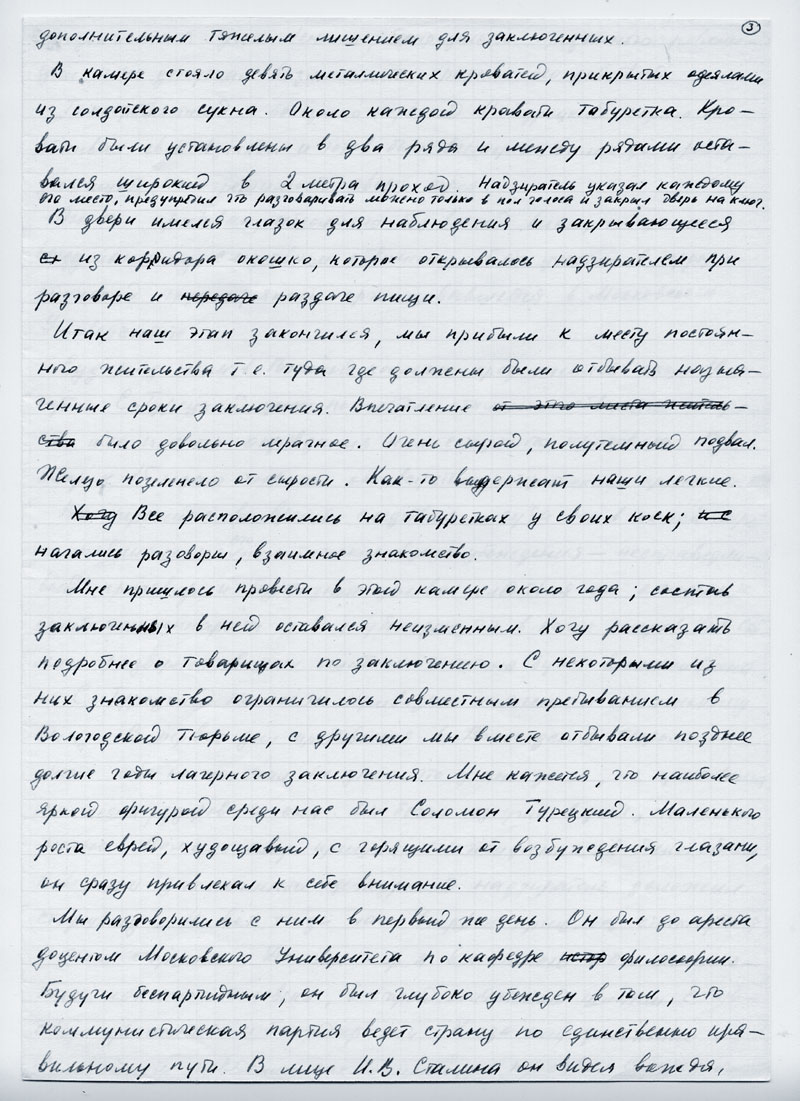 3
дополнительным тяжелым лишением для заключенных.
В камере стояло девять металлических кроватей, прикрытых одеялами
из солдатского сукна. Около каждой кровати табуретка. Кро-
вати были установлены в два ряда и между рядами оста-
вался широкий в 2 метра проход. Надзиратель указал каждому
его место, предупредил что разговаривать можно только в пол голоса и закрыл дверь на ключ.
В двери имелся глазок для наблюдения и закрывающееся
из корридора окошко, которое открывалось надзирателем при
разговоре и передаче раздаче пищи.
Итак наш этап закончился, мы прибыли к месту постоян-
ного жительства т.е. туда где должены были отбывать назна-
ченные сроки заключения. Впечатление от этого места житель-
ства было довольно мрачное. Очень сырой, полутемный подвал.
Железо позеленело от сырости. Как-то выдержат наши легкие.
Хочу Все расположились на табуретках у своих коек; и с
начались разговоры, взаимное знакомство.
Мне пришлось провести в этой камере около года; состав
заключенных в ней оставался неизменным. Хочу рассказать
подробнее о товарищах по заключению. С некоторыми из
них знакомство ограничилось совместным пребыванием в
Вологодской тюрьме, с другими мы вместе отбывали позднее
долгие годы лагерного заключения. Мне кажется, что наиболее
яркой фигурой среди нас был Соломон Турецкий. Маленького
роста еврей, худощавый, с горящими от возбуждения глазами,
он сразу привлекал к себе внимание.
Мы разговорились с ним в первый же день. Он был до ареста
доцентом Московского Университета по кафедре истор философии.
Будучи беспартийным, он был глубоко убежден в том, что
коммунистическая партия ведет страну по единственно пра-
вильному пути. В лице И.В. Сталина он видел вождя,